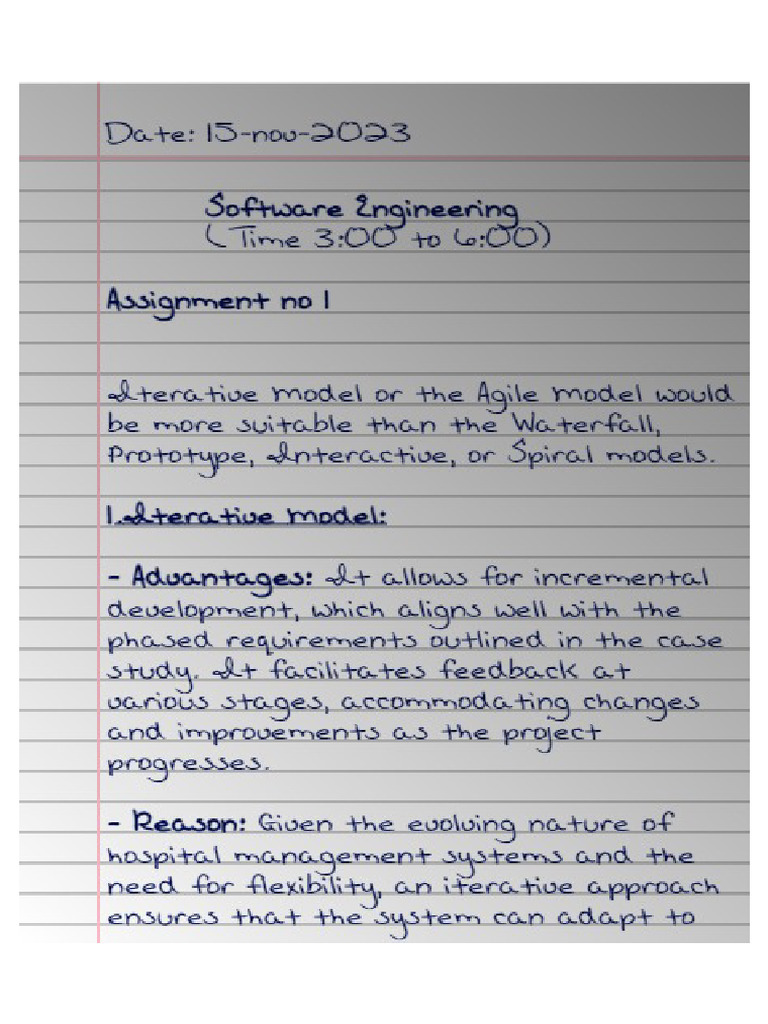 Date: 15-nov-2023
Software Engineering
(Time 3:00 to 6:00)
Assignment no 1
Iterative model or the Agile model would
be more suitable than the Waterfall,
Prototype, Interactive, or Spiral models.
1.Iterative model:
- Advantages: It allows for incremental
development, which aligns well with the
phased requirements outlined in the case
study. It facilitates feedback at
various stages, accommodating changes
and improvements as the project
progresses.
- Reason: Given the evolving nature of
hospital management systems and the
need for flexibility, an iterative approach
ensures that the system can adapt to